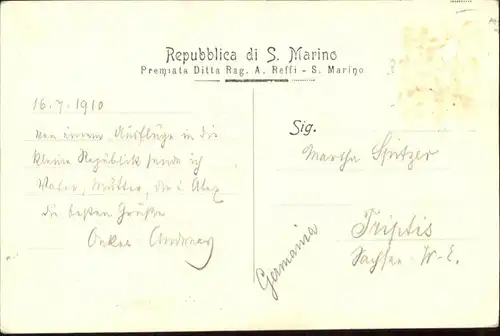 Repubblica di S. Marino
Premiata Ditta Rag. A. Reffi - S. Marino
16.7.1910
von einem Ausfluge in die
kleine Republik sende ich
Vater, Mutter, dir u. Alex
die besten Grüße
Onkel
Sig.
Martha Spitzer
Triptis
Sachsen W-E.
Germania